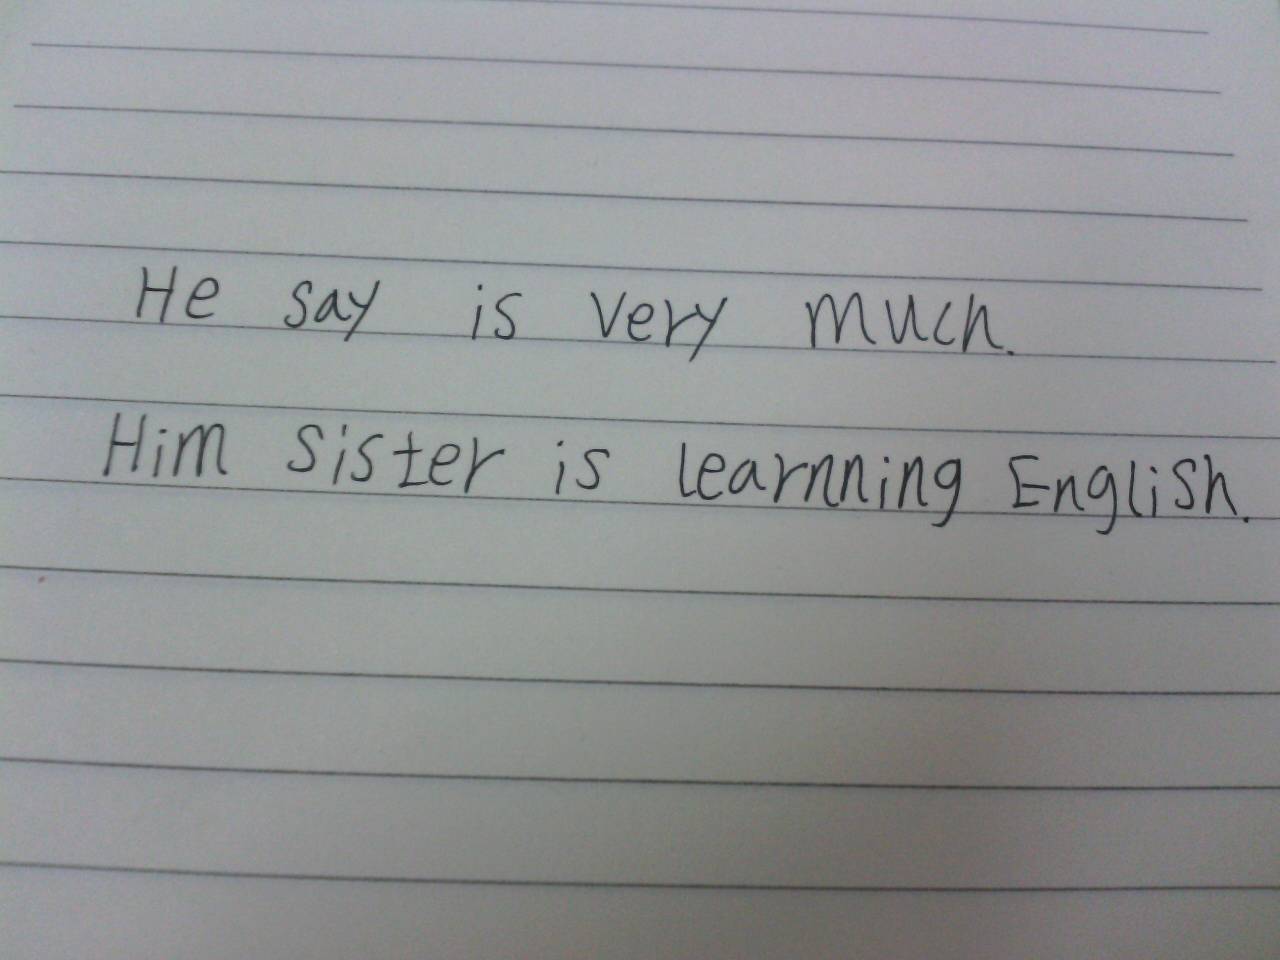 He say is very much.
Him sister is learnning English.